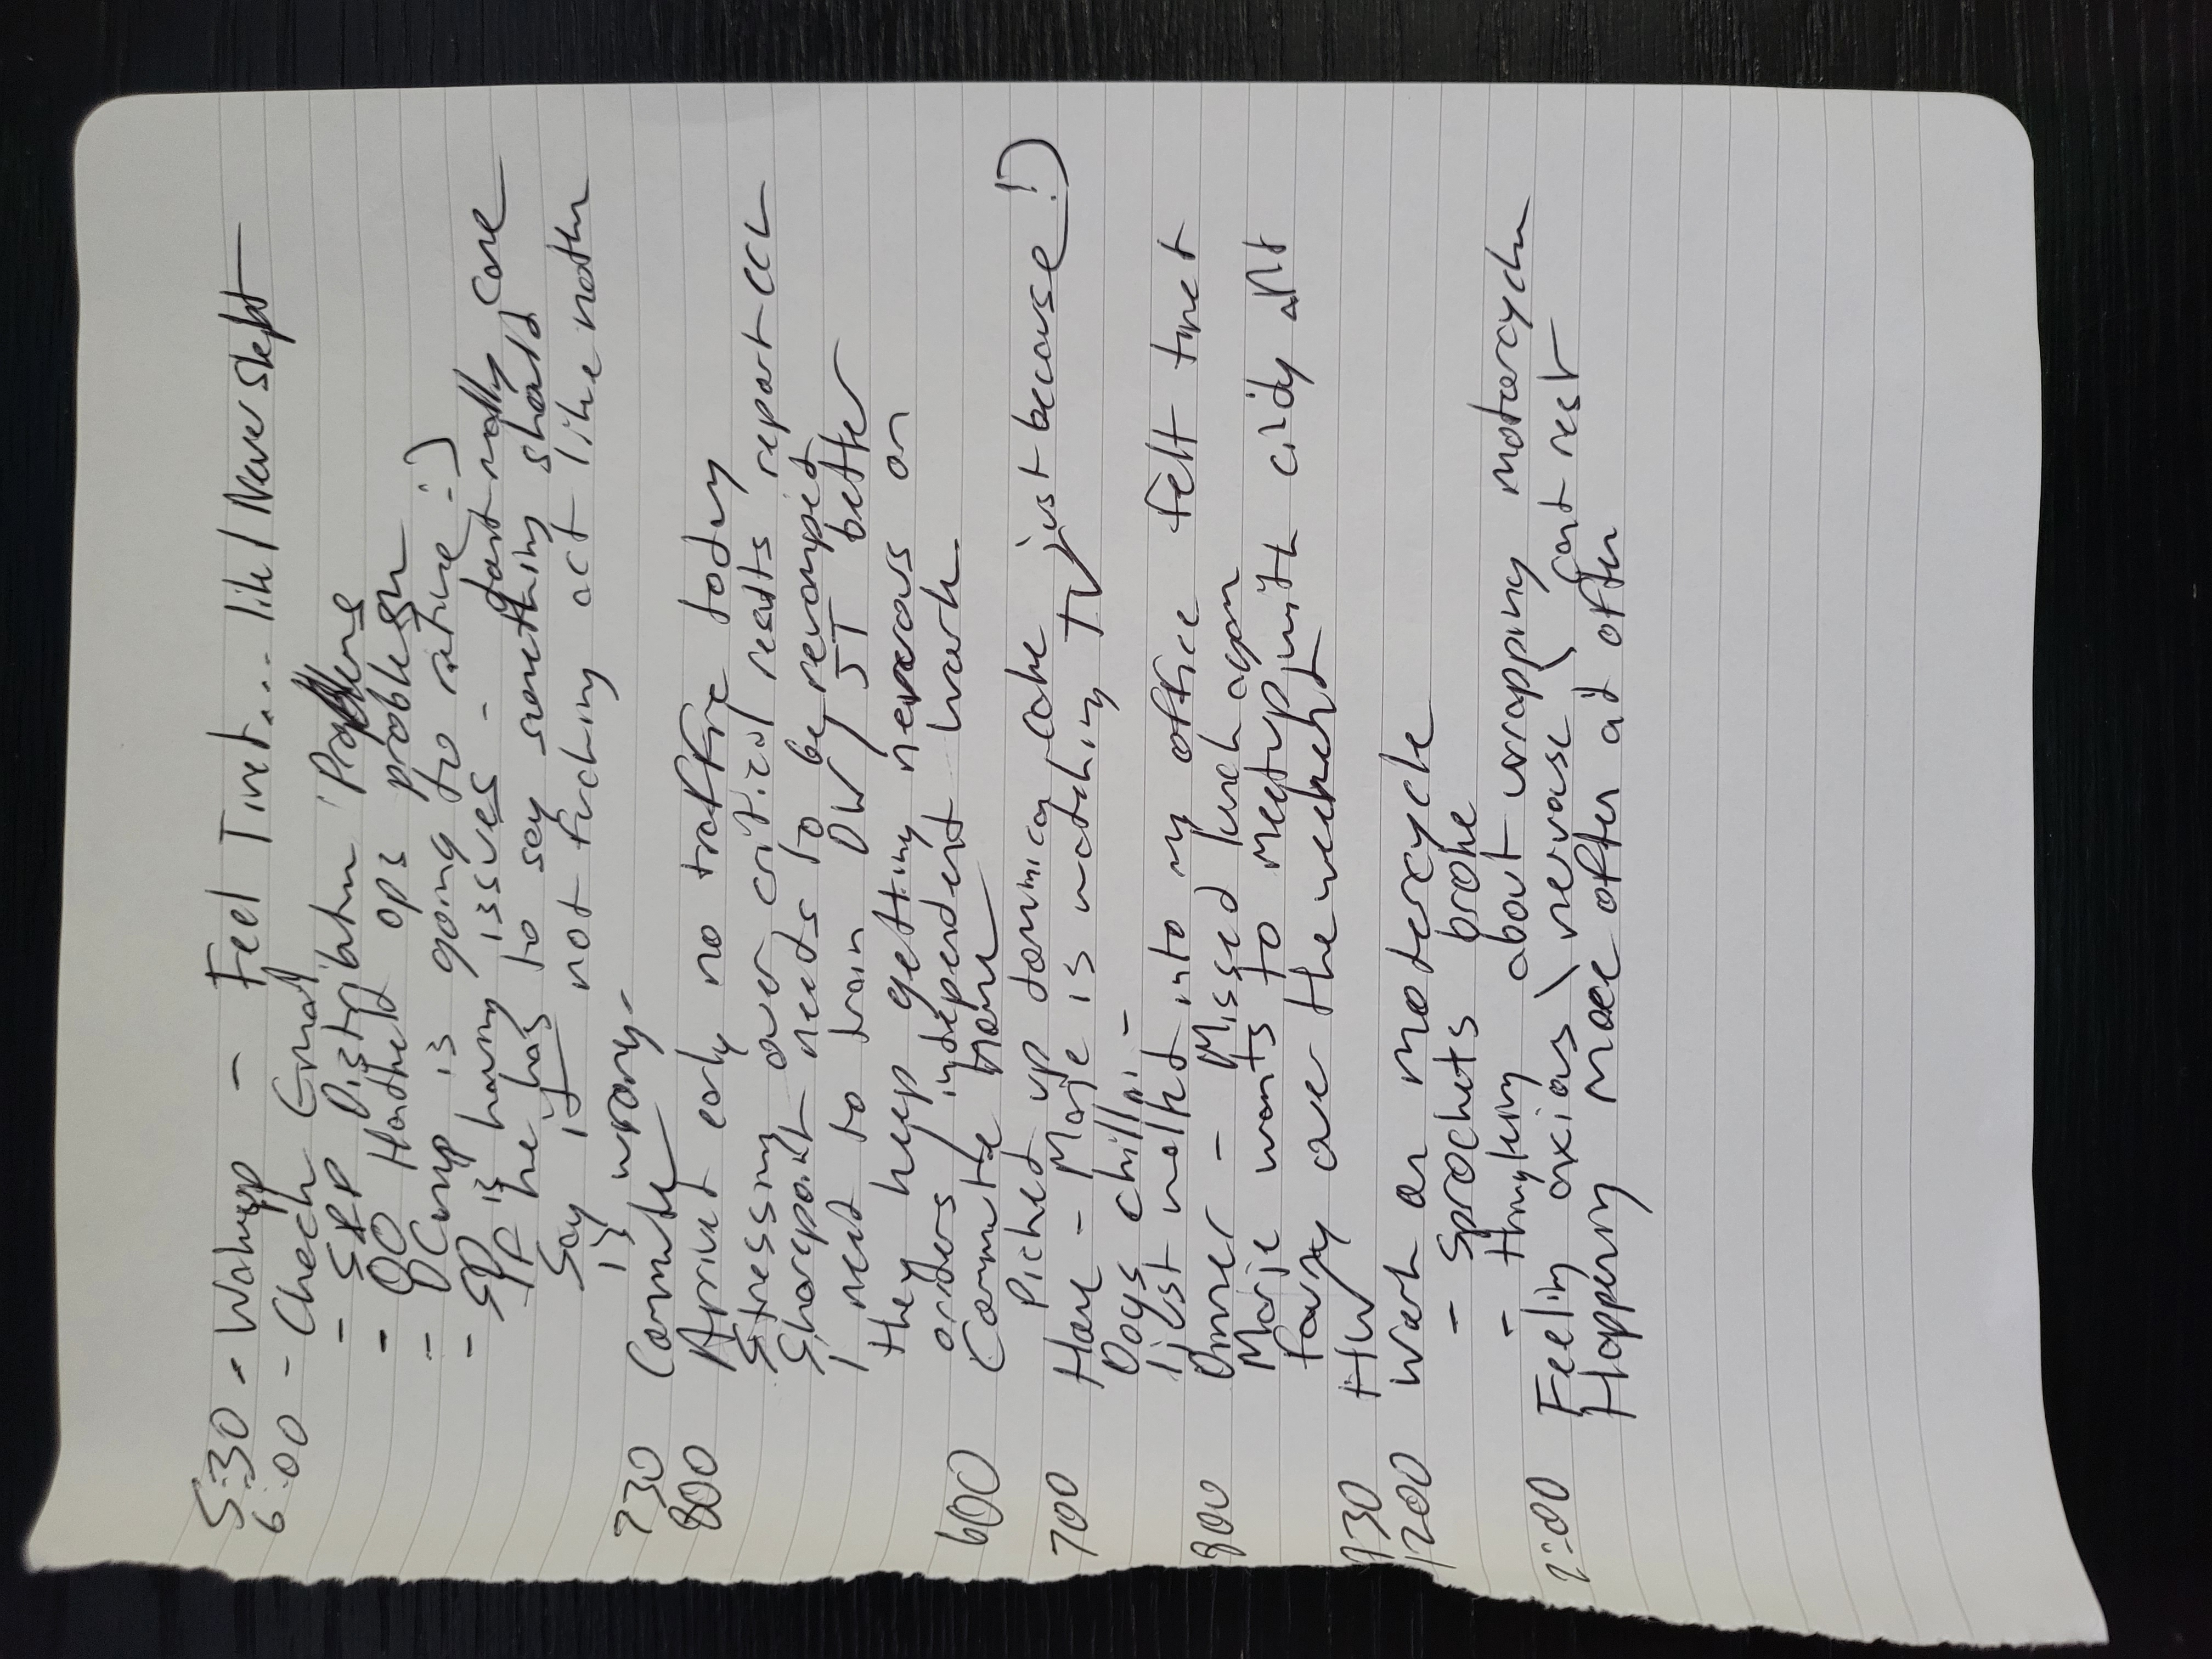 5:30 - Wakeup - Feel Tired... like I Never Slept
6:00 - Check Email
- SRP Distribution Problems
- OO Handheld ops problem
- DCamp is going to retire :)
- SP is having issues - dont really care
If he has to say something should
Say it not fucking act like nothin
is wrong-
730 Commute
800 Arrived early no traffic today
Stressing over critical results report CCL
Sharepoint needs to be revamped
I need to train DW / JT better
they keep getting nervous on
orders / independent work
600 Commute home
Picked up dominican cake just because !)
700 Home - Marje is watching TV
Dogs chillin -
I just walked into my office felt tired
800 Dinner - Missed lunch again
Marje wants to meetup with cindy and
family over the weekend
930 HW
1200 Work on motorcycle
- Sprockets broke
- thinking about wrapping motorcycle
2:00 Feeling anxious \ nervous \ cant rest
Happening more often and often